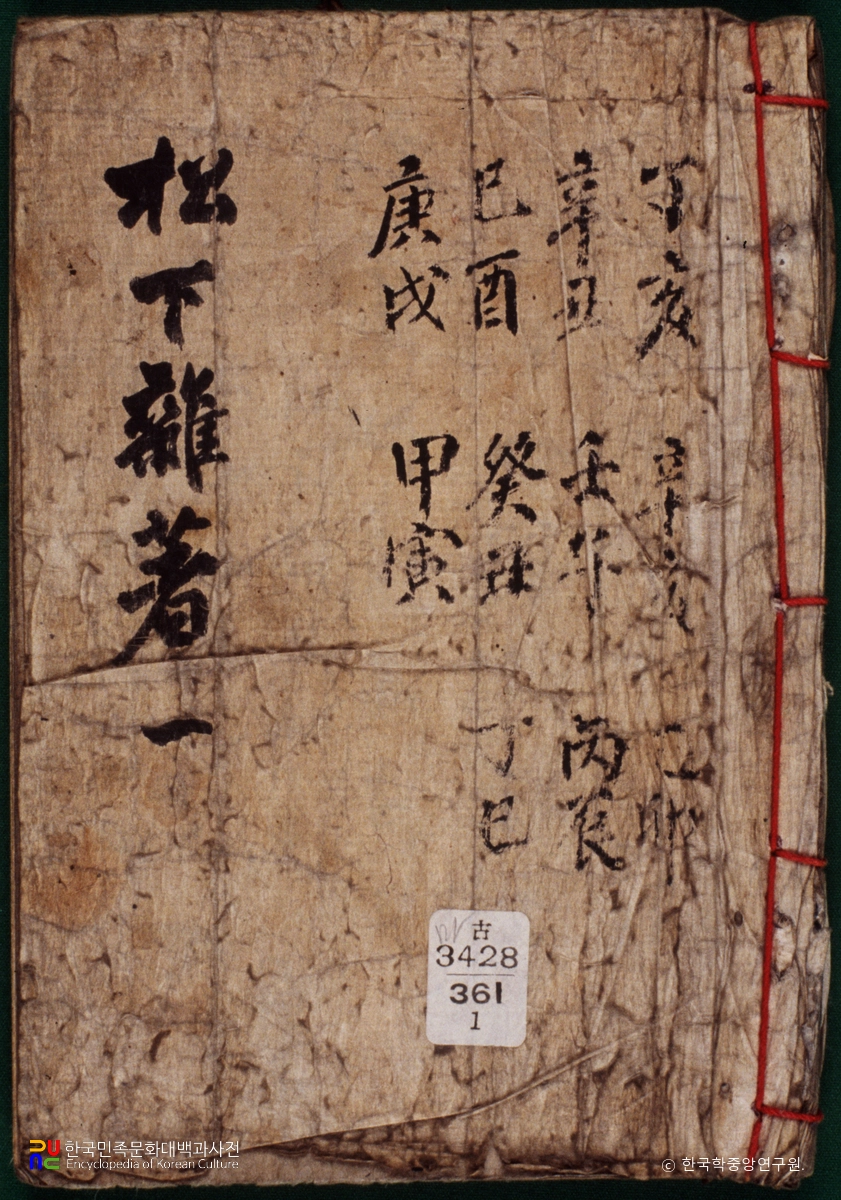 丁亥 辛亥 乙卯
辛丑 壬 丙辰
己酉 癸丑 丁巳
庚戌 甲寅
松下雜著 一
古
3428
361
1
한국민족문화대백과사전
Encyclopedia of Korean Culture
© 한국학중앙연구원.